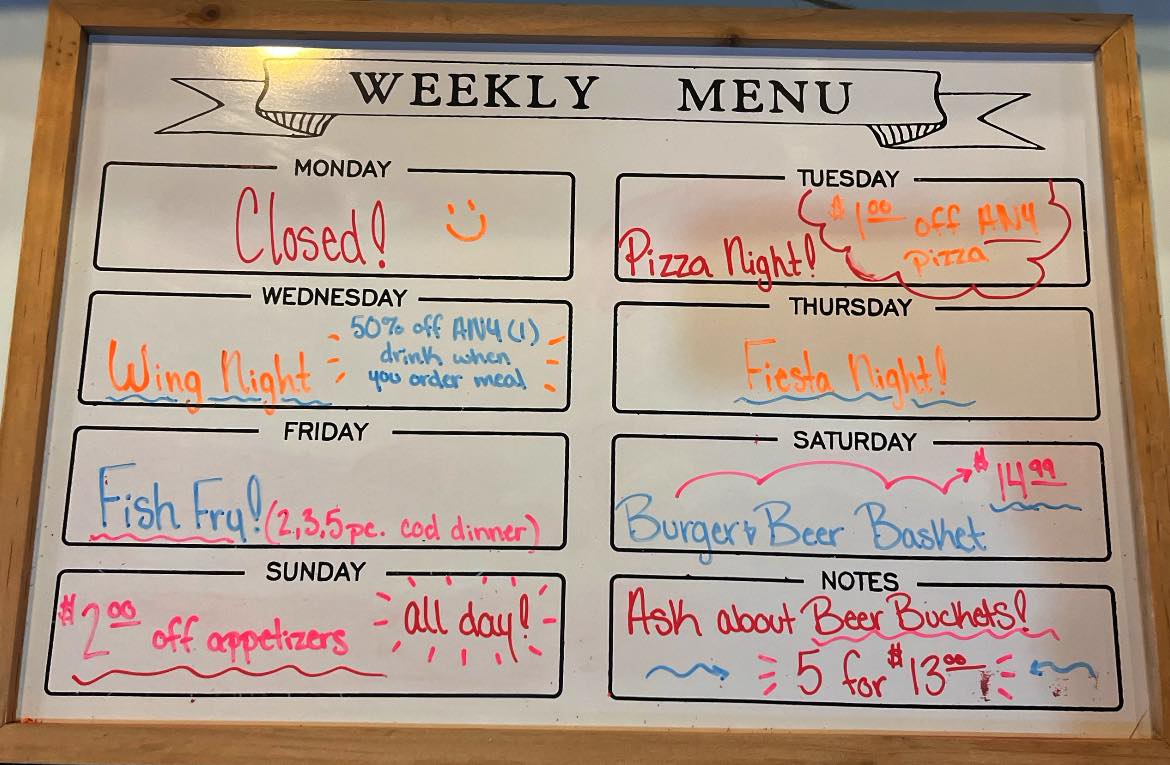 WEEKLY MENU
MONDAY
Closed! :)
TUESDAY
Pizza Night!
$1.00 off ANY
pizza
WEDNESDAY
Wing Night
50% off ANY (1)
drink when
you order meal
THURSDAY
Fiesta Night!
FRIDAY
Fish Fry! (2,3,5 pc. cod dinner)
SATURDAY
$14.99
Burger & Beer Basket
SUNDAY
$2.00 off appetizers
all day!
NOTES
Ask about Beer Buckets!
5 for $13.00